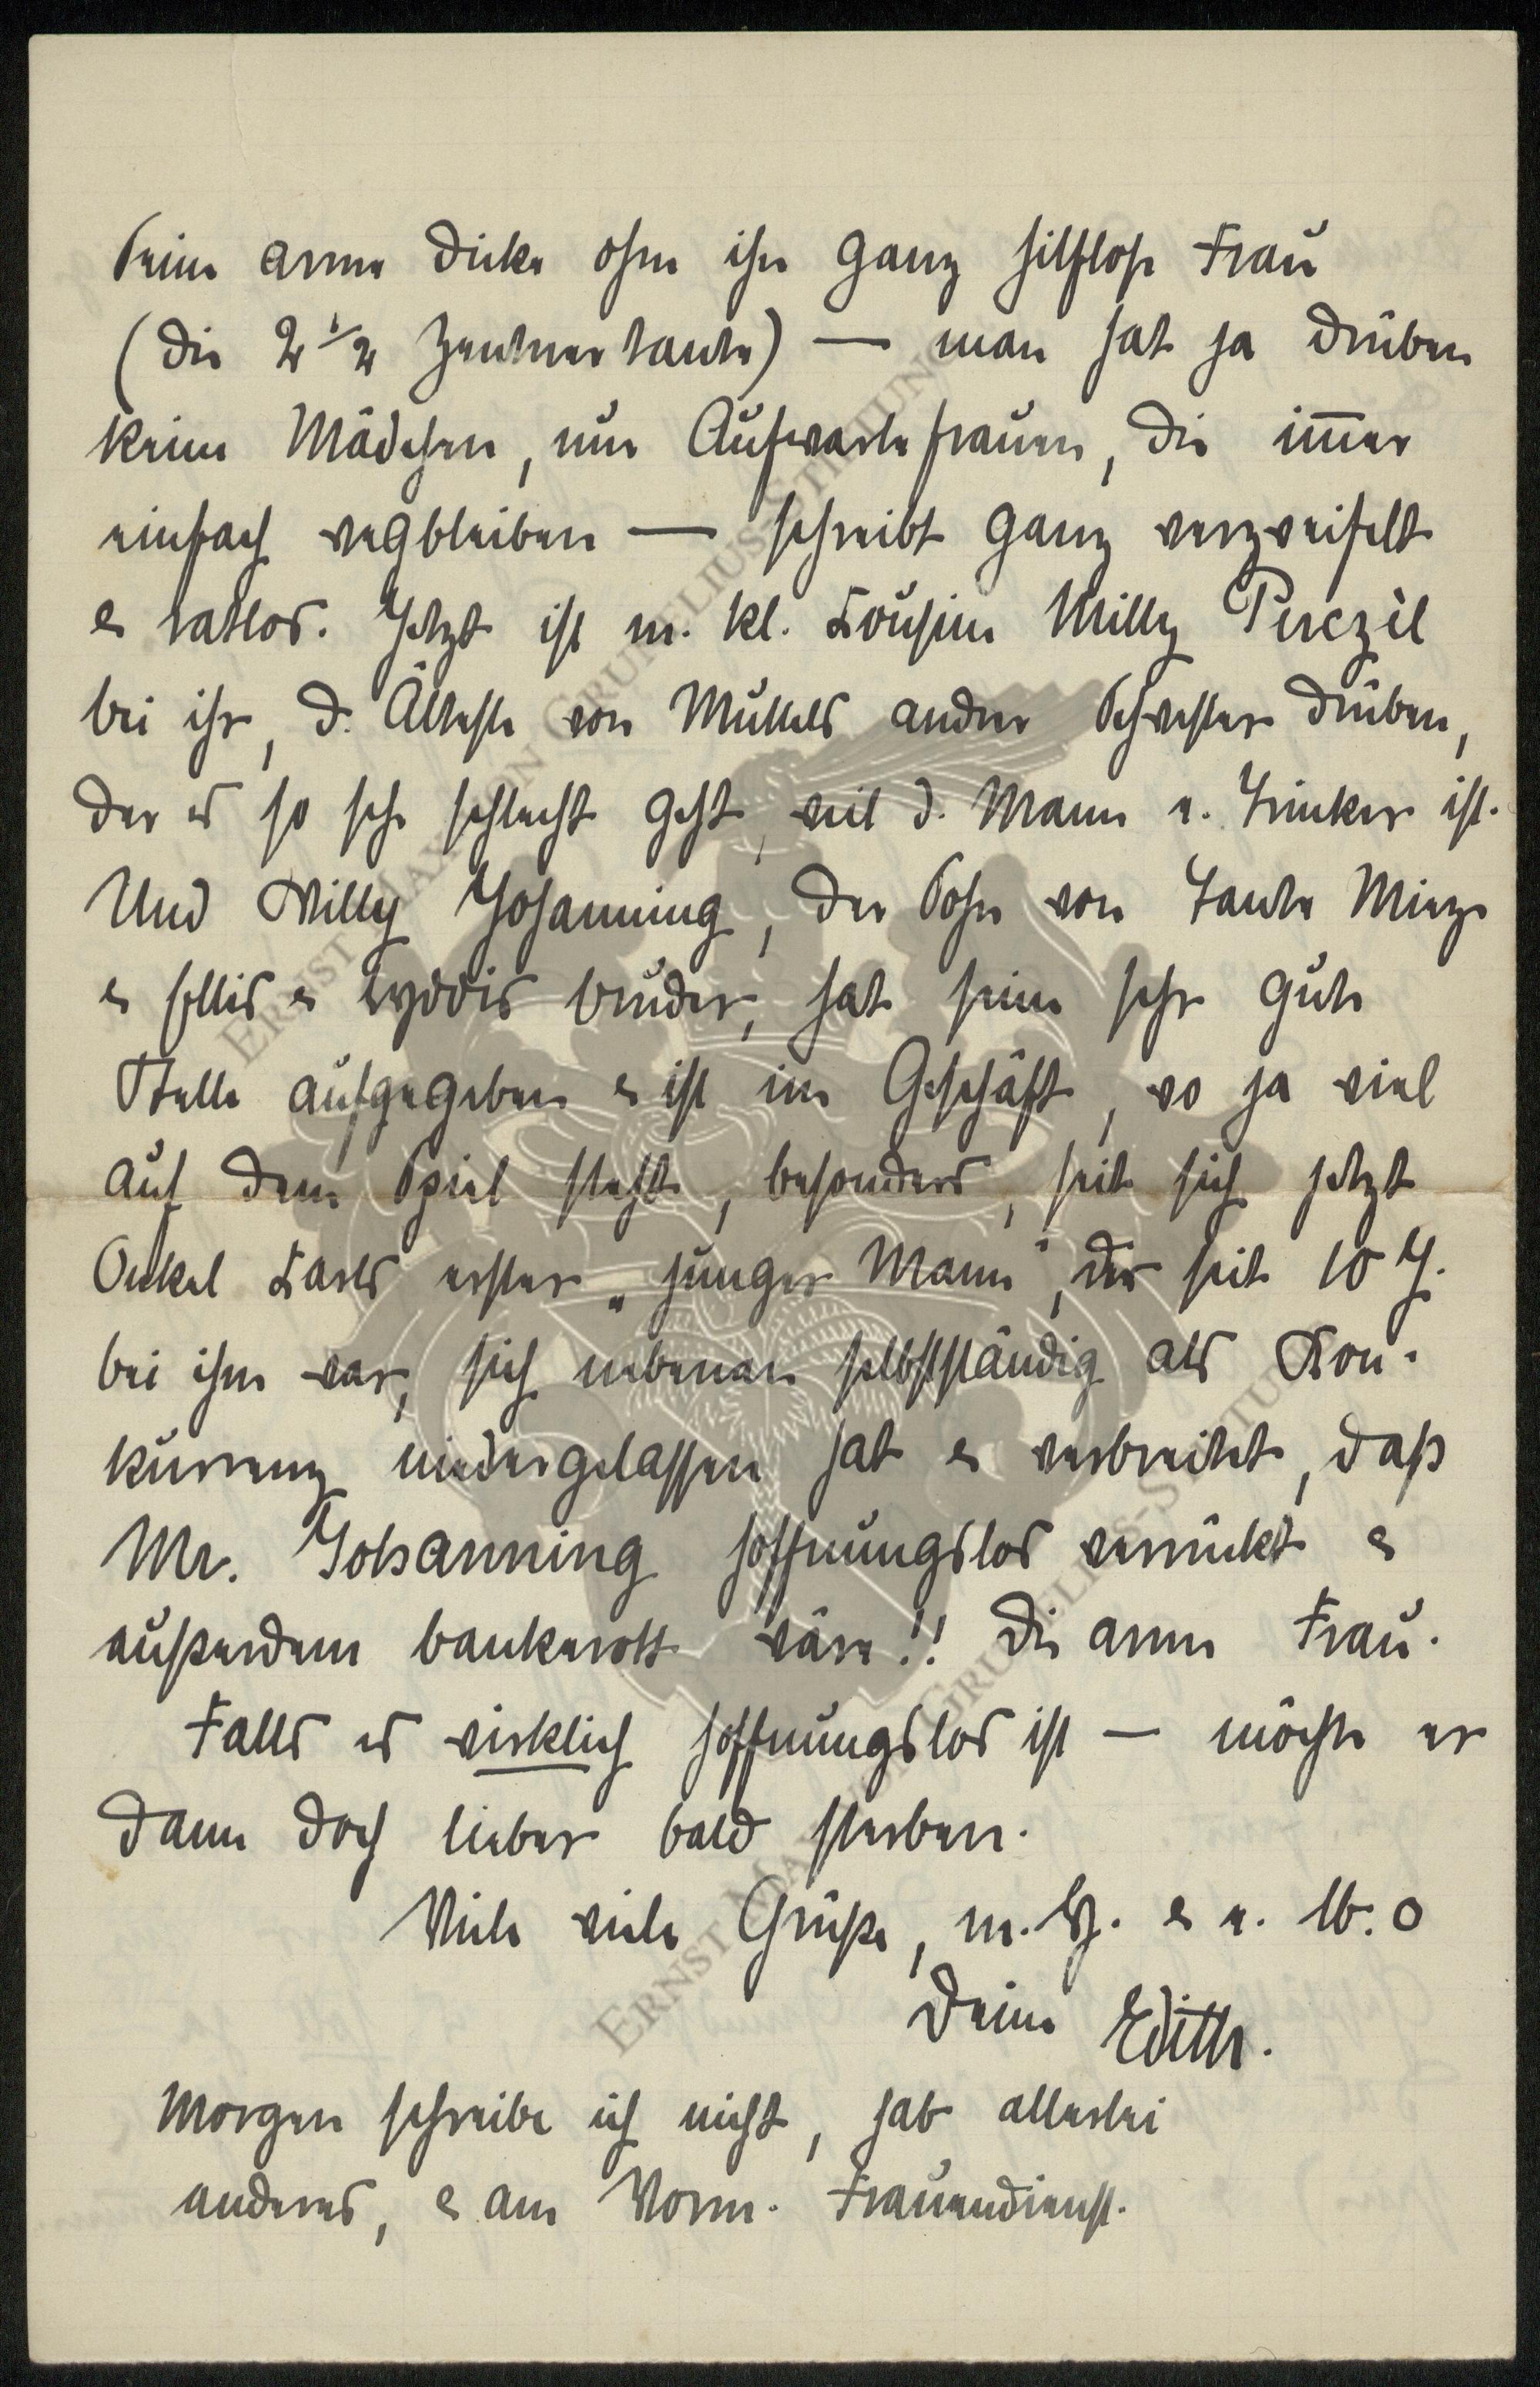 Seine arme dicke ohne ihn ganz hilflose Frau
(die 2 1/2 Zentnertante) — man hat ja drüben
keine Mädchen, nur Aufwartefrauen, die im̄er
einfach wegbleiben — schreibt ganz verzweifelt
& ratlos. Jetzt ist m. kl. Cousine Milly Perczèl
bei ihr, d. Älteste von Muttels andrer Schwester drüben,
der es so sehr schlecht geht, weil d. Mann e. Trinker ist.
Und Willy Johanning, der Sohn von Tante Mieze
& Ellis & Lyddis Bruder, hat seine sehr gute
Stelle aufgegeben & ist im Geschäft, wo ja viel
auf dem Spiel steht, besonders, seit sich jetzt
Onkel Carls erster „junger Mann", der seit 10 J.
bei ihm war, sich nebenan selbstständig als Kon-
kurrenz niedergelassen hat & verbreitet, daß
Mr. Johanning hoffnungslos verrückt &
außerdem bankerott wäre!! Die arme Frau.
Falls es wirklich hoffnungslos ist — möchte er
dann doch lieber bald sterben.
Viele viele Grüße, m. H. & e. lb. o
Deine Edith.
Morgen schreibe ich nicht, hab allerlei
anderes, & am Vorm. Frauendienst.
ERNST MAX VON GRUNELIUS-STIFTUNG
ERNST MAX VON GRUNELIUS-STIFTUNG